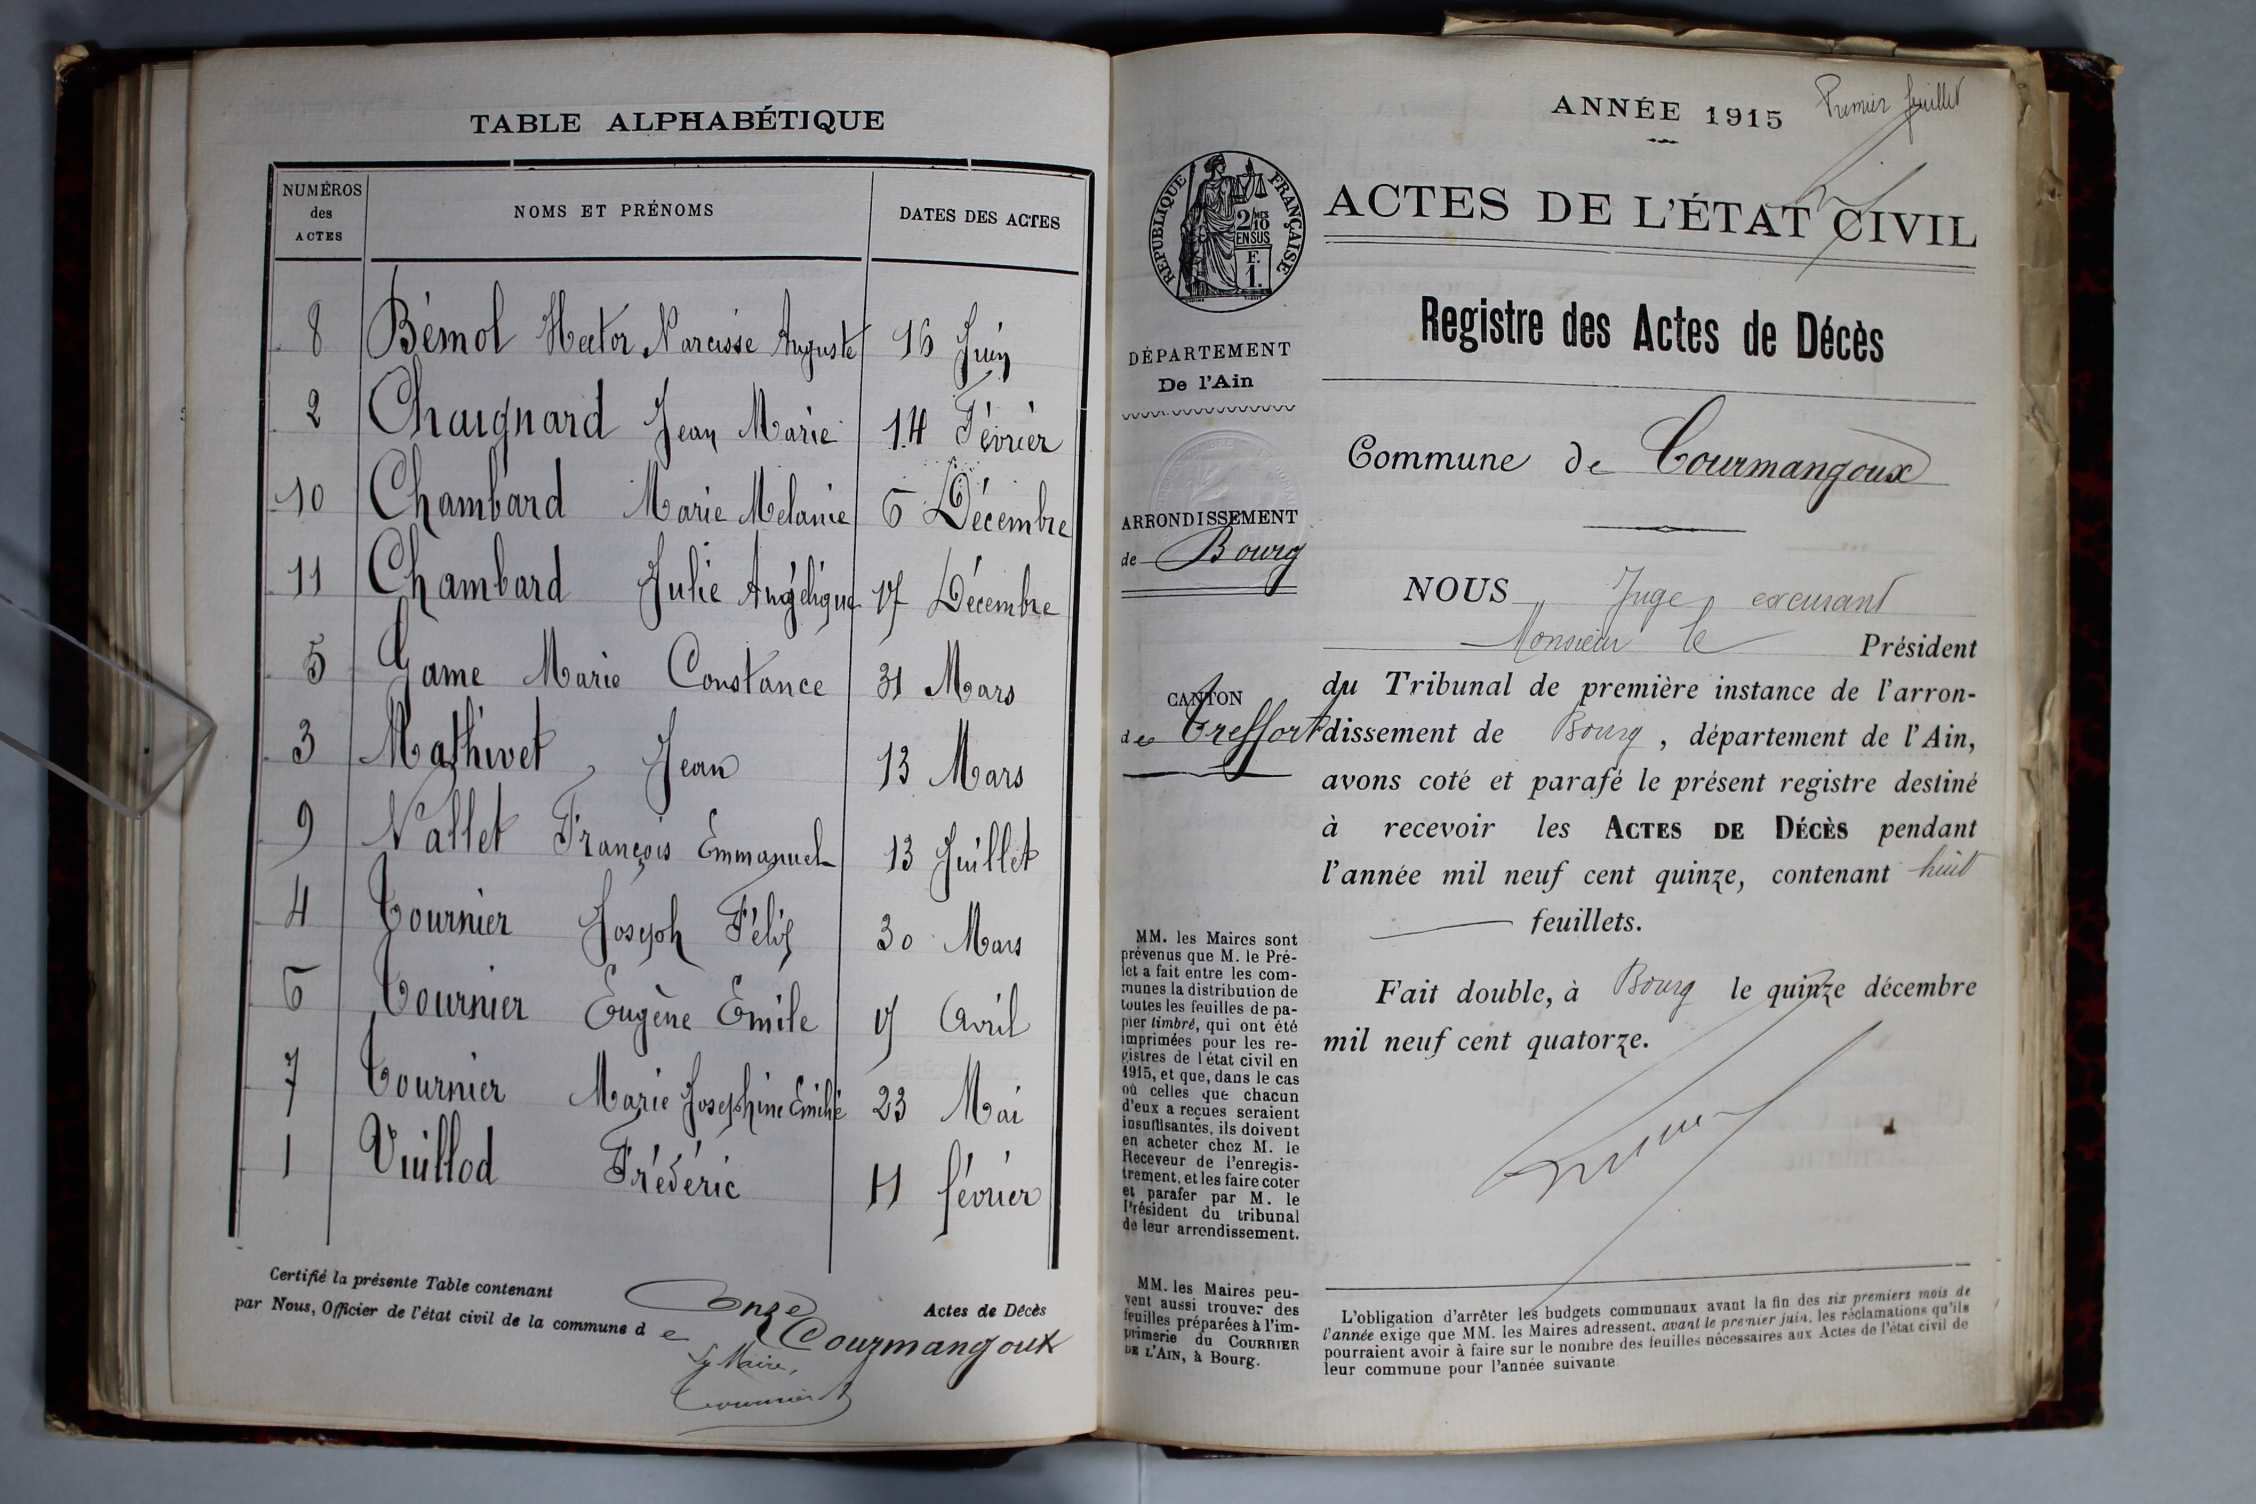 TABLE ALPHABÉTIQUE
NUMÉROS
des
ACTES
NOMS ET PRÉNOMS
DATES DES ACTES
8 Bémol Hector Narcisse Auguste 16 Juin
2 Chaignard Jean Marie 14 Février
10 Chambard Marie Melanie 6 Décembre
11 Chambard Julie Angélique 17 Décembre
5 Game Marie Constance 31 Mars
3 Mathivet Jean 13 Mars
9 Nallet François Emmanuel 13 Juillet
4 Tournier Joseph Félix 30 Mars
6 Tournier Eugène Emile Avril
7 Tournier Marie Joséphine Emilie 23 Mai
1 Vuillod Frédéric 11 février
Certifié la présente Table contenant Onze Actes de Décès
par Nous, Officier de l'état civil de la commune d e Courmangoux
Le Maire,
Premier feuillet
ANNÉE 1915
RÉPUBLIQUE FRANÇAISE
2/10
EN SUS
F.
1.
ACTES DE L'ÉTAT CIVIL
Registre des Actes de Décès
DÉPARTEMENT
De l'Ain
Commune de Courmangoux
ARRONDISSEMENT
de Bourg
CANTON
de Treffort
NOUS Juge excusant
Monsieur le Président
du Tribunal de première instance de l'arron-
dissement de Bourg, département de l'Ain,
avons coté et parafé le présent registre destiné
à recevoir les ACTES DE DÉCÈS pendant
l'année mil neuf cent quinze, contenant huit
feuillets.
Fait double, à Bourg le quinze décembre
mil neuf cent quatorze.
MM. les Maires sont
prévenus que M. le Pré-
fet a fait entre les com-
munes la distribution de
toutes les feuilles de pa-
pier timbré, qui ont été
imprimées pour les re-
gistres de l'état civil en
1915, et que, dans le cas
où celles que chacun
d'eux a reçues seraient
insuffisantes, ils doivent
en acheter chez M. le
Receveur de l'enregis-
trement, et les faire coter
et parafer par M. le
Président du tribunal
de leur arrondissement.
MM. les Maires peu-
vent aussi trouver des
feuilles préparées à l'im-
primerie du COURRIER
DE L'AIN, à Bourg.
L'obligation d'arrêter les budgets communaux avant la fin des six premiers mois de
l'année exige que MM. les Maires adressent, avant le premier juin, les réclamations qu'ils
pourraient avoir à faire sur le nombre des feuilles nécessaires aux Actes de l'état civil de
leur commune pour l'année suivante.